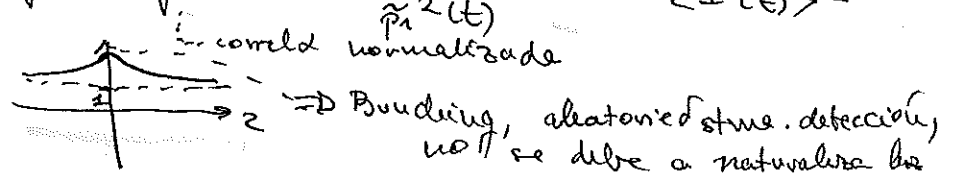 p̃₁²(t)
correld normalizada
1
τ
=> Bunching, aleatoried stma. detección,
no se debe a naturaleza luz